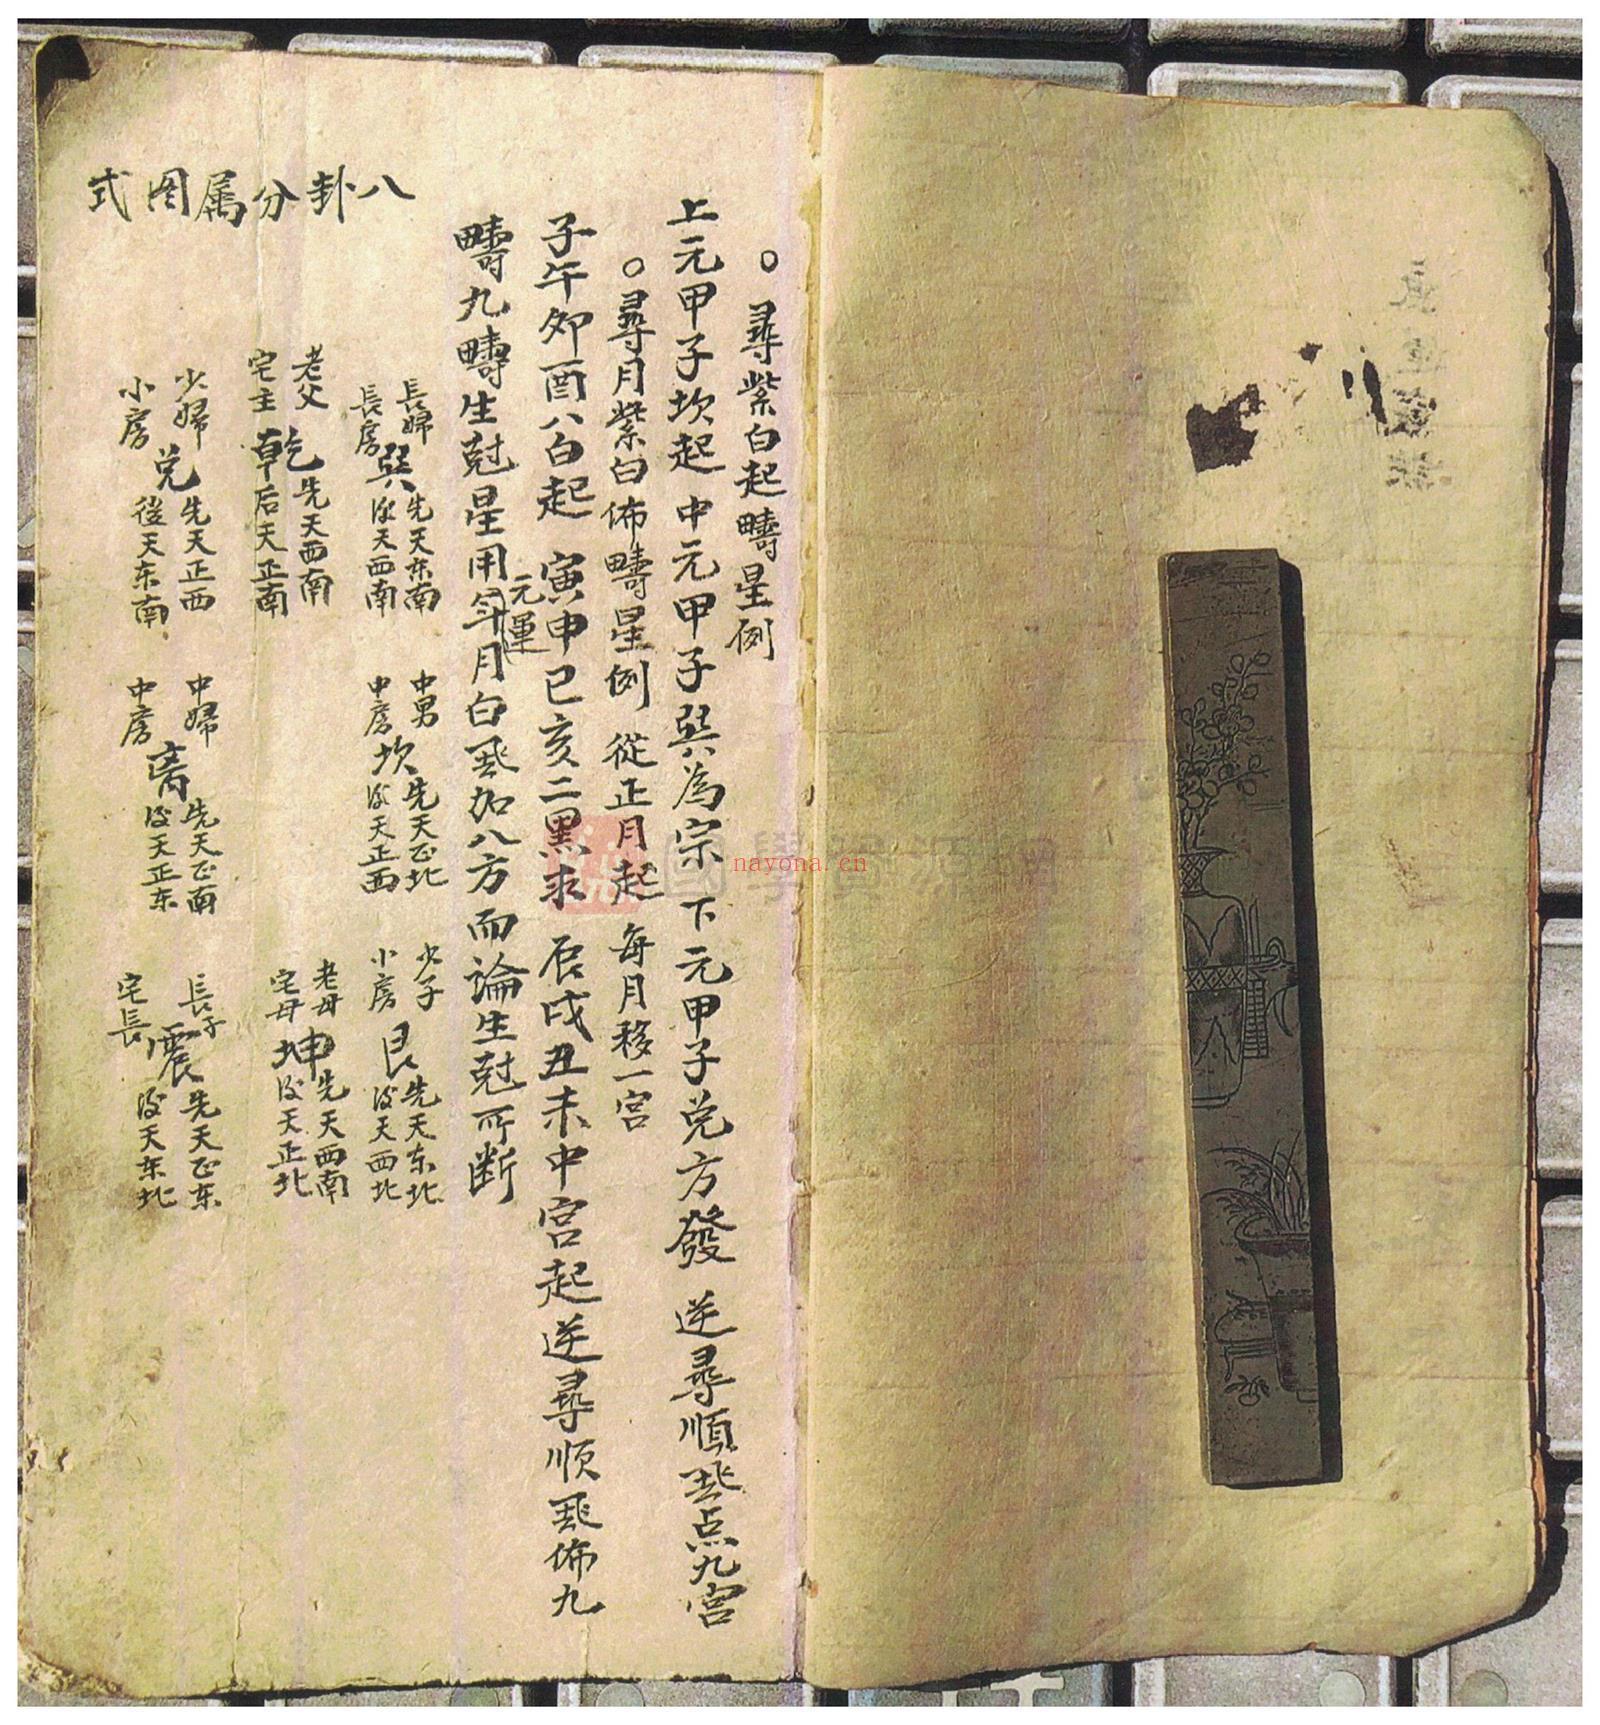 ○尋紫白起疇星例
上元甲子坎起 中元甲子巽為宗 下元甲子兌方發 逆尋順飛点九宮
○尋月紫白佈疇星例 從正月起 每月移一宮
子午夘酉八白起 寅申巳亥二黑求 辰戌丑未中宮起逆尋順飛佈九
疇九疇生尅星用年月白飛加八方而論生尅所断
元運
八卦分属图式
長婦
長房
巽
先天东南
後天西南
中男
中房
坎
先天正北
後天正西
少子
小房
艮
先天东北
後天西北
老父
宅主
乾
先天西南
后天正南
老母
宅母
坤
先天西南
後天正北
少婦
小房
兌
先天正西
後天东南
中婦
中房
离
先天正南
後天正东
長子
宅長
震
先天正东
後天东北
國學資源网
nayona.cn